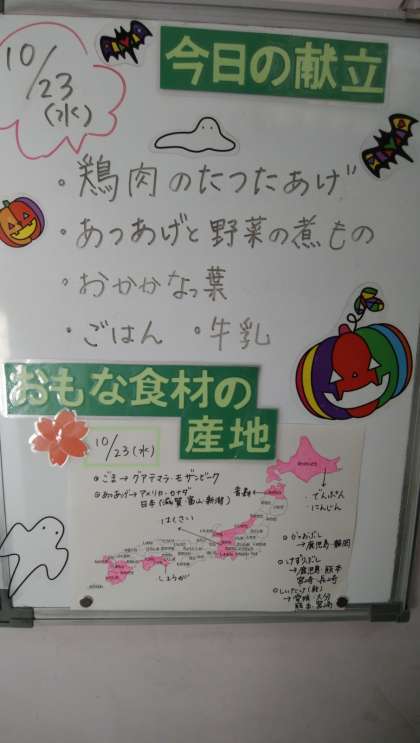 10/23(水)
今日の献立
・鶏肉のたつたあげ
・あつあげと野菜の煮もの
・おかかなっ葉
・ごはん ・牛乳
おもな食材の
産地
10/23(水)
ごま→グアテマラ・モザンビーク
あつあげ→アメリカ・カナダ
日本(滋賀・富山・新潟)
青森
でんぷん
にんじん
はくさい
しょうが
かつおぶし
→鹿児島・静岡
けずりぶし
→鹿児島・熊本
宮崎・長崎
しいたけ(乾)
→宮城・大分
熊本・宮崎